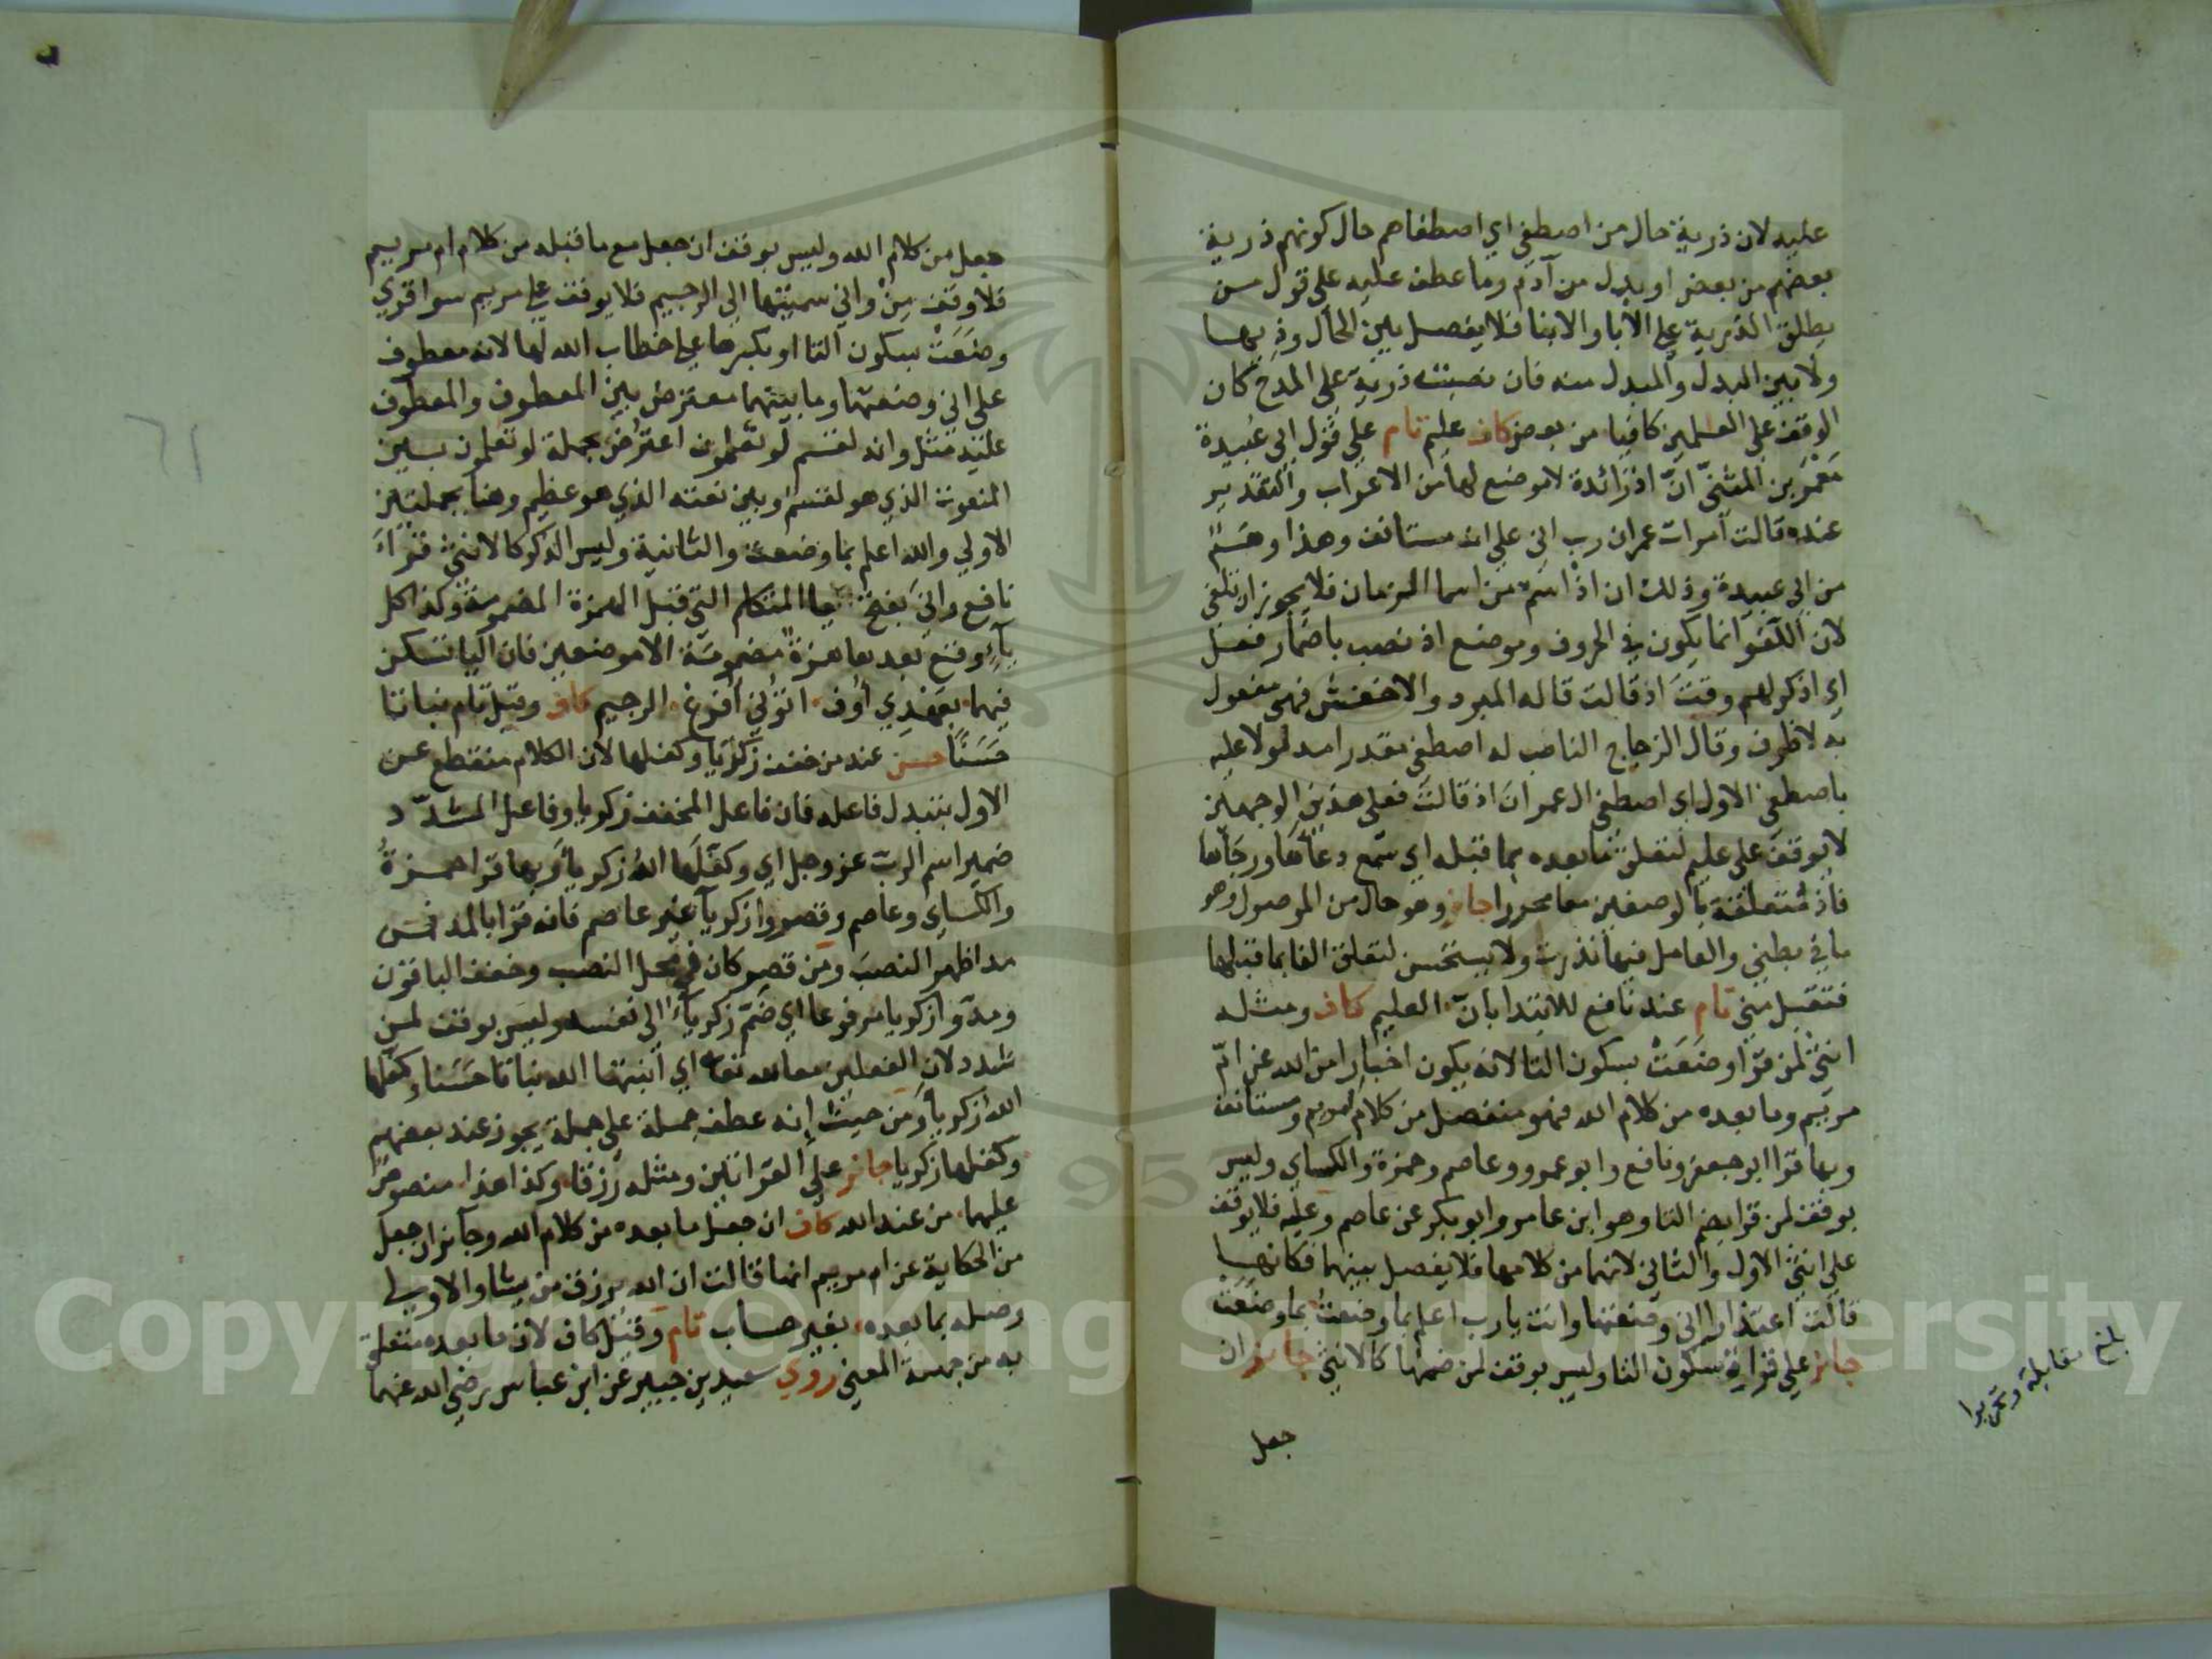 عليه لان ذرية حال من اصطفى اي اصطفاهم حال كونهم ذرية
بعضهم من بعض او بدل من آدم وما عطف عليه على قول من
يطلق الذرية على الابا والابنا فلا يفصل بين الحال وذيها
ولا بين البدل والمبدل منه فان نصبت ذرية على المدح كان
الوقف على العلمين كافيا من بعض كاف عليم تام على قول ابي عبيدة
معمر بن المثنى ان اذ زائدة لا موضع لها من الاعراب والتقدير
عنده قالت امرات عمران رب اني على انه مستانف وهذا وهم
من ابي عبيدة وذلك ان اذ اسم من اسما الزمان فلا يجوز ان تلغى
لان اللغو انما يكون في الحروف وموضع اذ نصب باضمار فعل
اي اذكر لهم وقت اذ قالت قاله المبرد والاخفش فهي مفعول
به لا ظرف وقال الزجاج الناصب له اصطفى مقدرا مدلولا عليه
باصطفى الاول اي اصطفى ال عمران اذ قالت فعلى هذين الوجهين
لا يوقف على عليم لتعلق ما بعده بما قبله اي سمع دعاها ورجاها
فاذ متعلقة بالوصفين معا محررا جائز وهو حال من الموصول وهو
ما في بطني والعامل فيها نذرت ولا يستحسن لتعلق الفا بما قبلها
فتقبل مني تام عند نافع للابتدا بان العليم كاف ومثله
انثى لمن قرا وضعت بسكون التا لانه يكون اخبارا من الله عن ام
مريم وما بعده من كلام الله فهو منفصل من كلام مريم ومستانف
وبها قرا ابو جعفر ونافع وابو عمرو وعاصم وحمزة والكساي وليس
بوقف لمن قرا بضم التا وهو ابن عامر وابو بكر عن عاصم وعليه فلا يوقف
على انثى الاول والثاني لانهما من كلامها فلا يفصل بينهما فكانها
قالت اعتذارا اني وضعتها وانت يا رب اعلم بما وضعت بما وضعت
جائز على قراءة سكون التا وليس بوقف لمن ضمها كالانثى جائز ان
جعل
بلغ مقابلة وتحريرا
جعل من كلام الله وليس بوقف ان جعل مع ما قبله من كلام ام مريم
فلا وقف من واني سميتها الى الرجيم فلا يوقف على مريم سوا قري
وضعت بسكون التا او بكسرها على خطاب الله لها لانه معطوف
على اني وضعتها وما بينهما معترض بين المعطوف والمعطوف
عليه مثل وانه لقسم لو تعلمون اعترض بجملة لو تعلمون بين
المنعوت الذي هو لقسم وبين نعته الذي هو عظيم وهنا بجملتين
الاولى والله اعلم بما وضعت والثانية وليس الذكر كالانثى قراء
نافع واني بفتح يا المتكلم التي قبل الهمزة المضمومة وكذا كل
ياء وقع بعدها همزة مضمومة الا موضعين فان اليا تسكن
فيهما بعهدي أوف اتوني أفرغ الرجيم كاف وقيل تام نباتا
حسنا حسن عند من خفف زكريا وكفلها لان الكلام منقطع عن
الاول بتبدل فاعله فان فاعل المخفف زكريا وفاعل المشدد
ضمير اسم الرب عز وجل اي وكفلها الله زكريا وبها قرا حمزة
والكساي وعاصم وقصروا زكريا غير عاصم فانه قرا بالمد فمن
مد اظهر النصب ومن قصر كان في محل النصب وخفف الباقون
ومدوا زكريا مرفوعا اي ضم زكرياء الى نفسه وليس بوقف لمن
شدد لان الفعلين معا لله تعا اي انبتها الله نباتا حسنا وكفلها
الله زكريا ومن حيث انه عطف جملة على جملة يجوز عند بعضهم
وكفلها زكريا جائز على القرائتين ومثله رزقا وكذا هذا منصوص
عليهما من عند الله كاف ان جعل ما بعده من كلام الله وجائز ان جعل
من الحكاية عن ام مريم انها قالت ان الله يرزق من يشا والاولى
وصله بما بعده بغير حساب تام وقيل كاف لان ما بعده متعلق
به من جهة المعنى روي سعيد بن جبير عن ابن عباس رضي الله عنهما
٦١
Copyright © King Saud University
1957